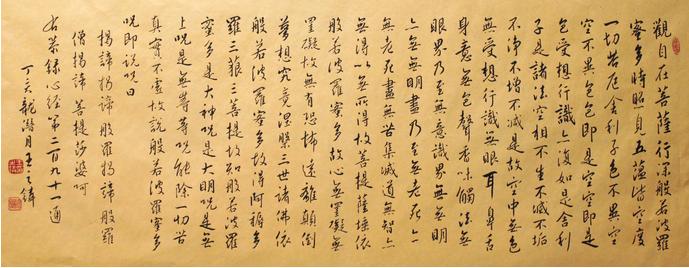 觀自在菩薩行深般若波羅
蜜多時照見五蘊皆空度
一切苦厄舍利子色不異空
空不異色色即是空空即是
色受想行識亦復如是舍利
子是諸法空相不生不滅不垢
不淨不增不減是故空中無色
無受想行識無眼耳鼻舌
身意無色聲香味觸法無
眼界乃至無意識界無無明
亦無無明盡乃至無老死亦
無老死盡無苦集滅道無智亦
無得以無所得故菩提薩埵依
般若波羅蜜多故心無罣礙無
罣礙故無有恐怖遠離顛倒
夢想究竟涅槃三世諸佛依
般若波羅蜜多故得阿耨多
羅三藐三菩提故知般若波羅
蜜多是大神呪是大明呪是無
上呪是無等等呪能除一切苦
真實不虛故說般若波羅蜜多
呪即說呪曰
揭諦揭諦般羅揭諦般羅
僧揭諦菩提莎婆呵
右恭錄心經第二百九十一通
丁亥龍潛月王之